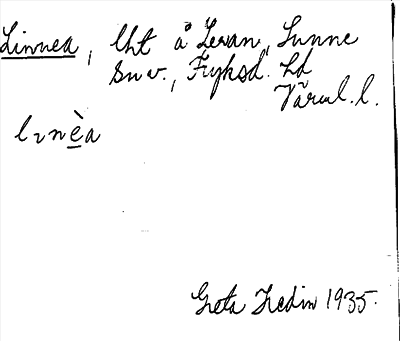 Linnea, lht å Levan, Sunne
snv., Fryksd. hd
Värml. l.
lınèa
Greta Hedin 1935.